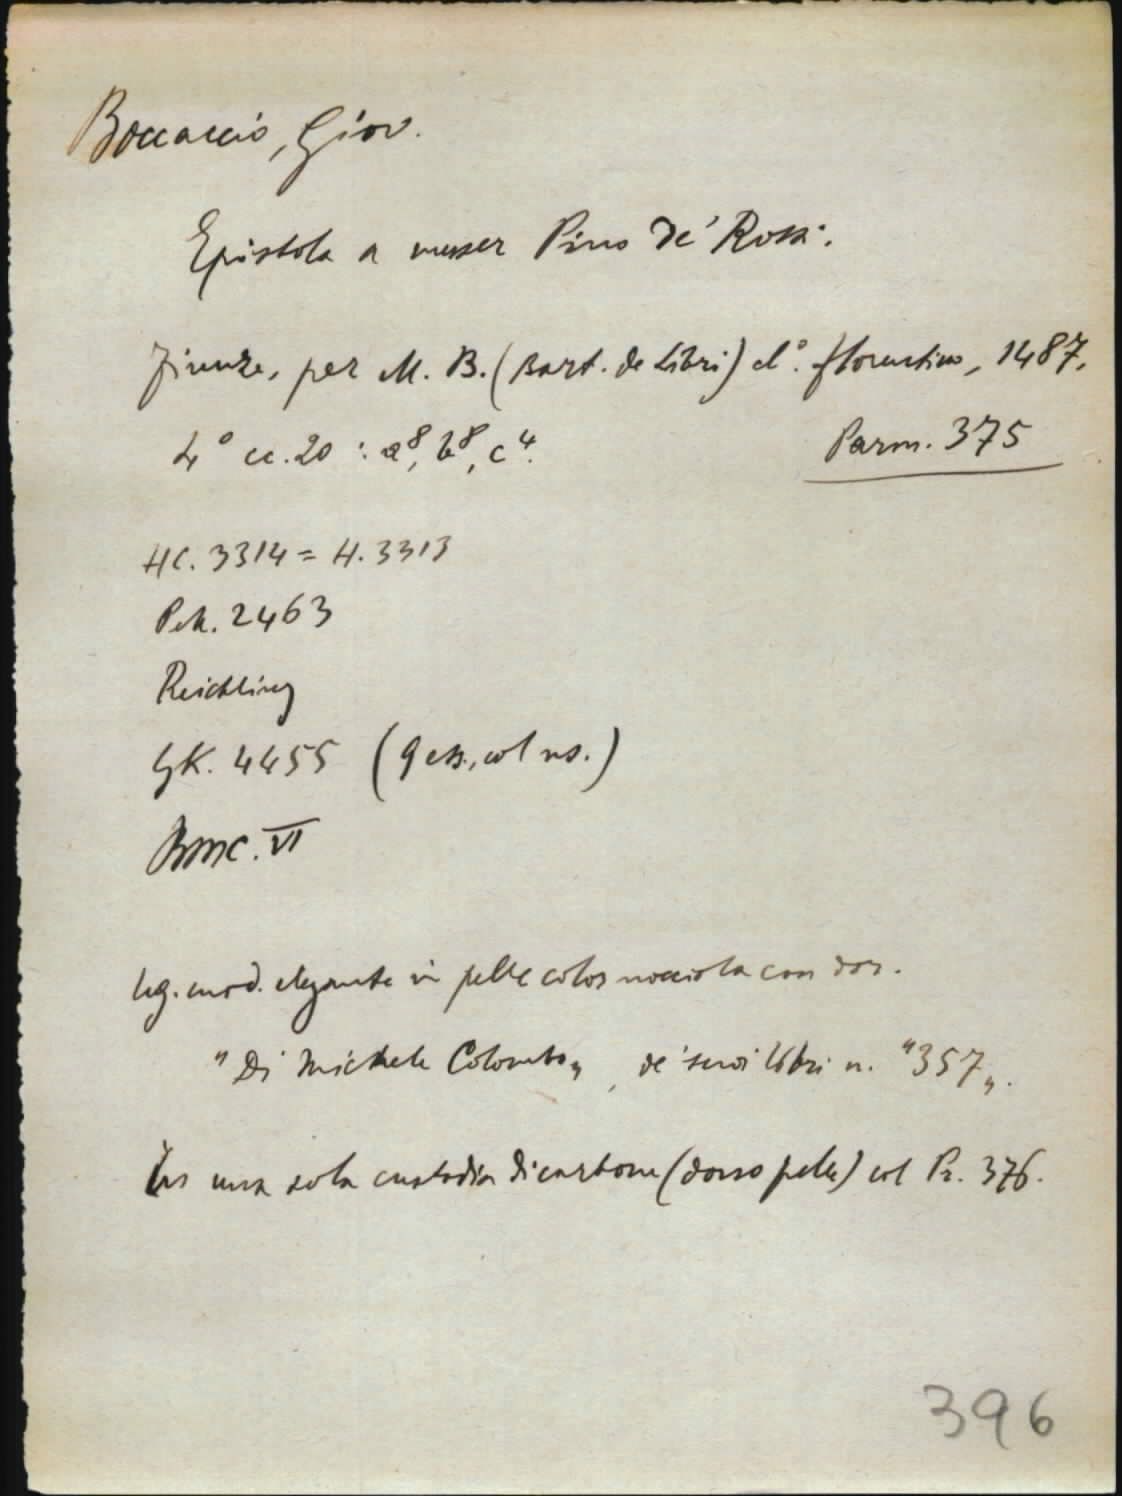 Boccaccio, Giov.
Epistola a messer Pino de' Rossi.
Firenze, per M. B. (Bart. de Libri) cl.° florentino, 1487,
4° cc. 20 : a⁸, b⁸, c⁴.
Parm. 375
HC. 3314 = H. 3313
Pell. 2463
Reichling
GK. 4455 (9 es., col ns.)
BMC. VI
leg. mod. elegante in pelle color nocciola con dor.
"Di Michele Colombo„, de' suoi libri n. "357„.
In una sola custodia di cartone (dorso pelle) col Pr. 376.
396